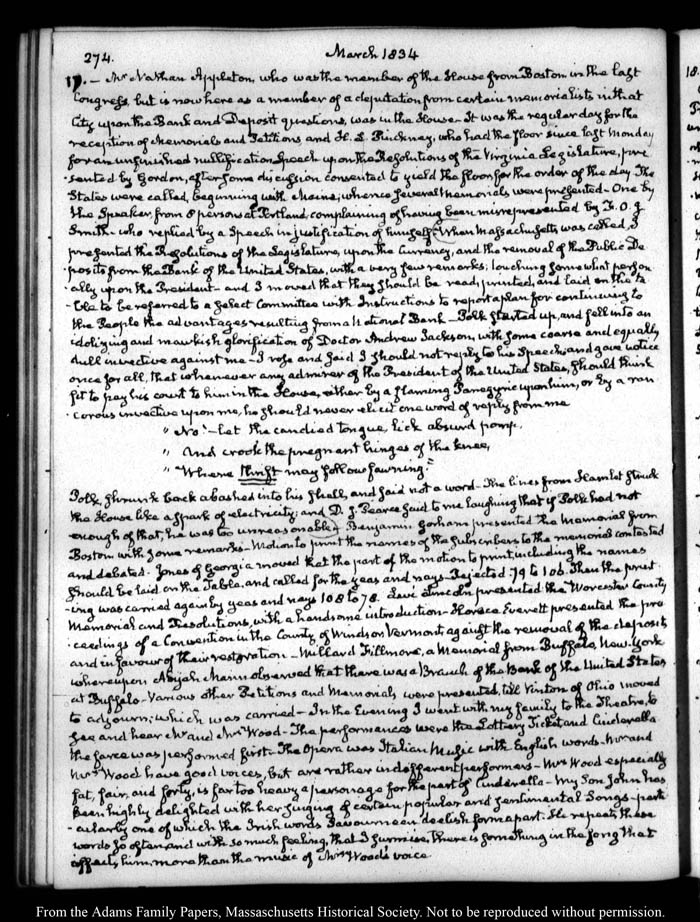 274.
March 1834
17. – Mr Nathan Appleton, who was the member of the House from Boston in the last
Congress, but is now here as a member of a deputation from certain memorialists in that
City upon the Bank and Deposit questions, was in the House – It was the regular day for the
reception of Memorials and Petitions and H. L. Pinckney, who had the floor since last Monday
for an unfinished nullification Speech upon the Resolutions of the Virginia Legislature, pre
-sented by Gordon, after some discussion consented to yield the floor for the order of the day. The
States were called, beginning with Maine, whence several memorials were presented – One by
the Speaker, from 8 persons at Portland, complaining of having been misrepresented by F. O. J.
Smith – who replied by a Speech in justification of himself. When Massachusetts was called, I
presented the Resolutions of the Legislature, upon the Currency, and the removal of the Public De
-posits from the Bank of the United States, with a very few remarks; touching somewhat person
-ally upon the President – and I moved that they should be read, printed, and laid on the ta
-ble to be referred to a select Committee with Instructions to report a plan for continuing to
the People the advantages resulting from a National Bank – Polk started up, and fell into an
idolizing and mawkish glorification of Doctor Andrew Jackson, with some coarse and equally
dull invective against me – I rose and said I should not reply to his Speech; and gave notice
once for all, that whenever any admirer of the President of the United States, should think
fit to pay his court to him in the House, either by a flaming Panegyric upon him, or by a ran
-corous invective upon me, he should never elicit one word of reply from me
" No! – let the candied tongue, lick absurd pomp,
" And crook the pregnant hinges of the knee,
" Where thrift may follow fawning."
Polk, shrunk back abashed into his shell, and said not a word – The lines from Hamlet struck
the House like a spark of electricity; and D. J. Pearce said to me laughing that if Polk had not
enough of that, he was too unreasonable. Benjamin Gorham presented the Memorial from
Boston with some remarks – Motion to print the names of the subscribers to the memorial contested
and debated. Jones of Georgia moved that the part of the motion to print, including the names
should be laid on the Table, and called for the yeas and nays – Rejected 79 to 106. Then the print
-ing was carried again by yeas and nays 108 to 78. Levi Lincoln presented the Worcester County
Memorial and Resolutions, with a handsome introduction – Horace Everett presented the pro
-ceedings of a Convention in the County of Windsor Vermont, against the removal of the deposits
and in favour of their restoration – Millard Fillmore, a Memorial from Buffalo, New-York
whereupon Abijah Mann observed that there was a Branch of the Bank of the United States
at Buffalo – Various other Petitions and Memorials were presented, till Vinton of Ohio moved
to adjourn; which was carried – In the Evening I went with my family to the Theatre, to
see and hear Mr and Mrs Wood – The performances were the Lottery Ticket and Cinderella
the farce was performed first – The Opera was Italian Music with English words – Mr and
Mrs Wood have good voices, but are rather indifferent performers – Mrs Wood especially
fat, fair, and forty, is far too heavy a personage for the part of Cinderella – My Son John has
been highly delighted with her singing of certain popular and sentimental Songs – parti
-cularly one of which the Irish words Savourneen deelish form a part. He repeats these
words so often, and with so much feeling, that I surmise, there is something in the song that
affects him, more than the music of Mrs Wood's voice
From the Adams Family Papers, Massachusetts Historical Society. Not to be reproduced without permission.